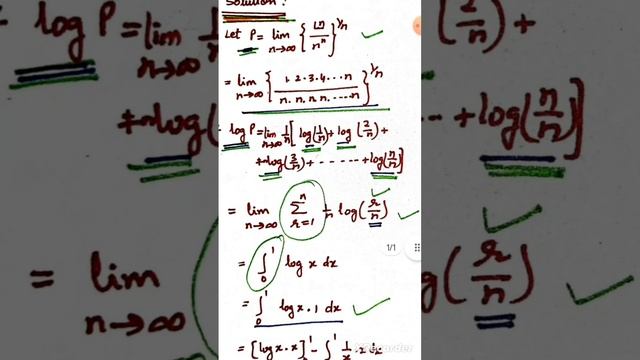 Solution:
Let P = lim n→∞ {∟n / nⁿ}^1/n
= lim n→∞ {1·2·3·4····n / n·n·n·n·····n}^1/n
log P = lim n→∞ 1/n [log(1/n) + log(2/n) +
+ log(3/n) + ------ + log(n/n)]
= lim n→∞ Σ r=1 n 1/n log(r/n)
= ∫₀¹ log x dx
= ∫₀¹ log x · 1 dx
= [log x · x]₀¹ - ∫₀¹ 1/x · x dx
1/1
log P = lim n→∞
+ log(
= lim n→∞
(2/n) +
+ log(n/n)]
g(r/n)